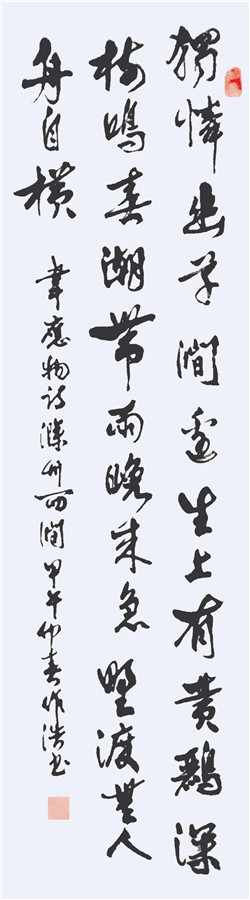 獨憐幽草澗邊生上有黃鸝深
樹鳴春潮帶雨晚來急野渡無人
舟自橫
韋應物詩滁州西澗甲午仲春作浩書